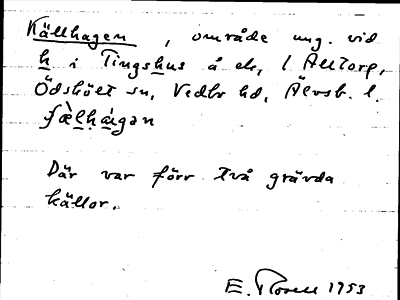 Källhagen, område ung. vid
h i Tingshus å ek, 1 Alltorp,
Ödskölt sn, Vedbo hd, Älvsb. l.
Där var förr två grävda
källor.
E. Rosell 1953